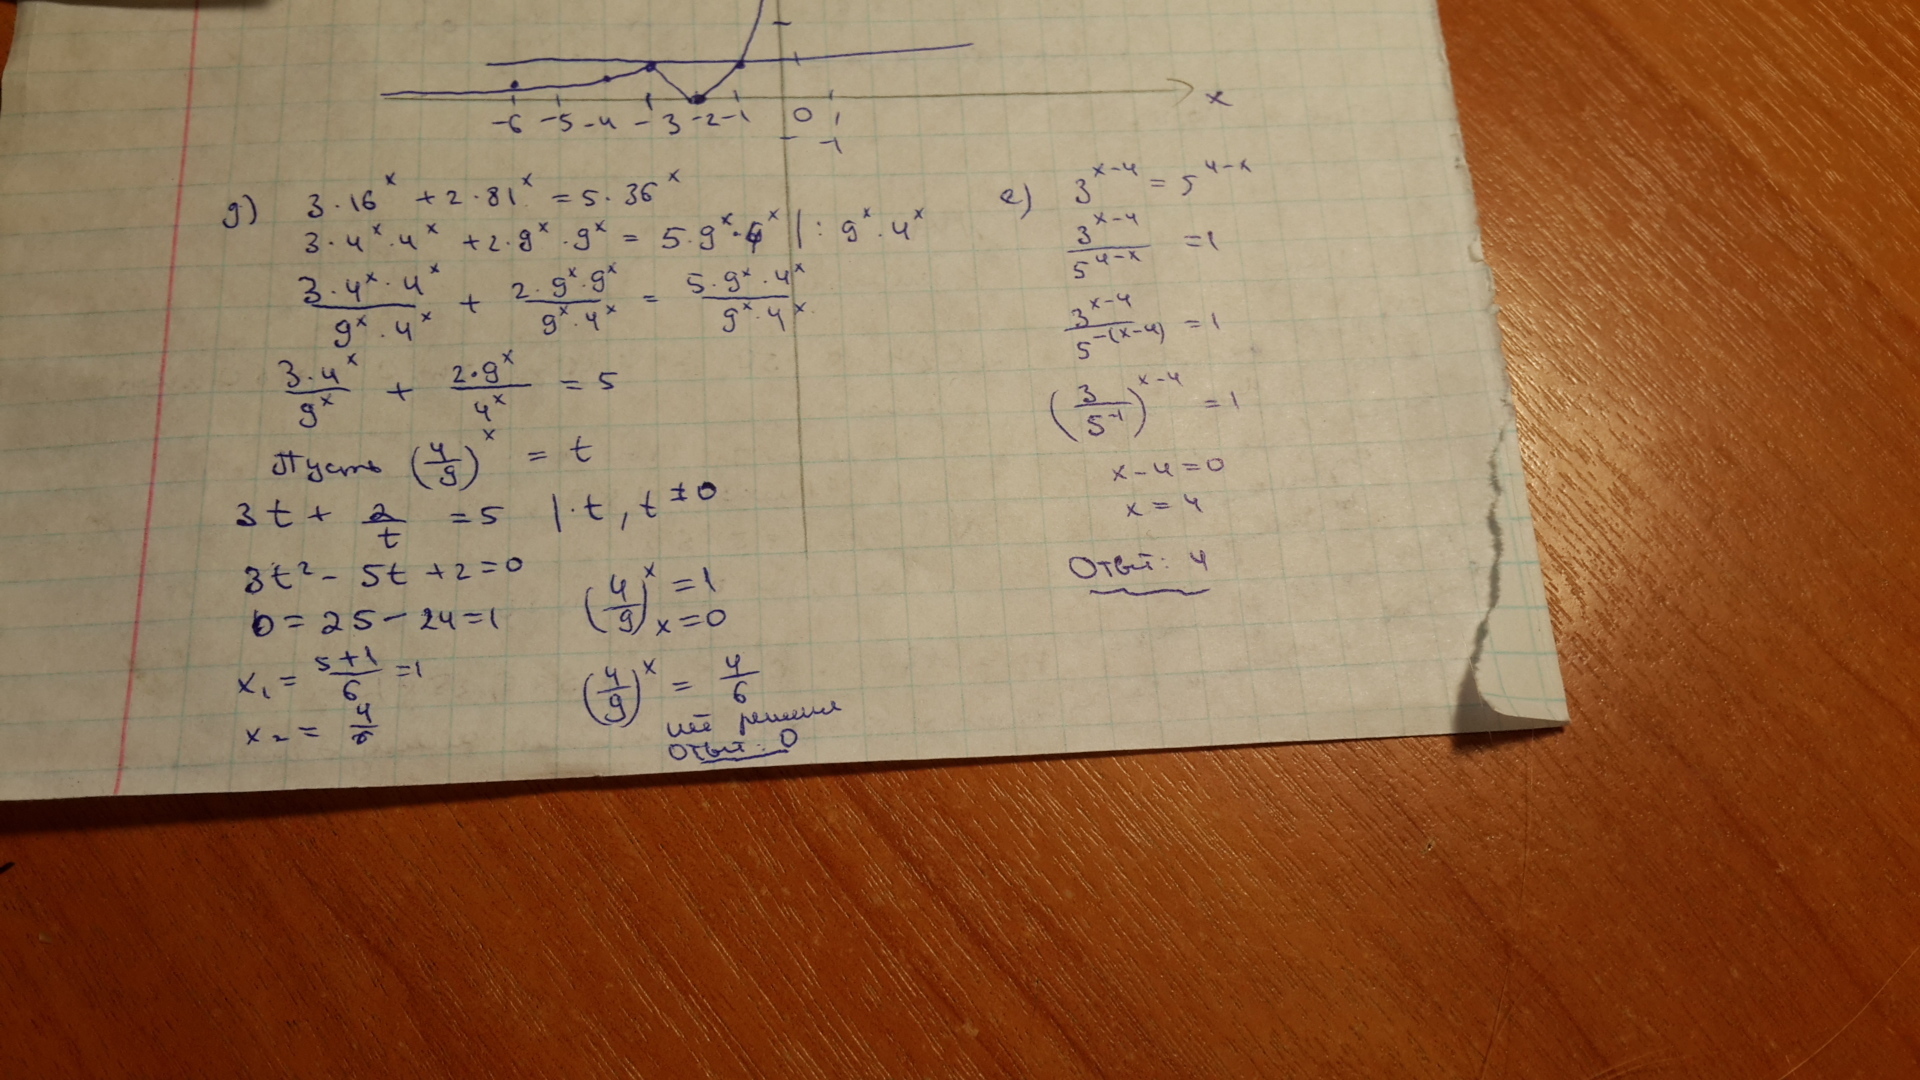 x
-6 -5 -4 -3 -2 -1 0 1
-1
д) 3·16^x + 2·81^x = 5·36^x
3·4^x·4^x + 2·9^x·9^x = 5·9^x·4^x |: 9^x·4^x
3·4^x·4^x/9^x·4^x + 2·9^x·9^x/9^x·4^x = 5·9^x·4^x/9^x·4^x
3·4^x/9^x + 2·9^x/4^x = 5
Пусть (4/9)^x = t
3t + 2/t = 5 |·t, t ≠ 0
3t² - 5t + 2 = 0
D = 25 - 24 = 1
x₁ = 5+1/6 = 1
x₂ = 4/6
(4/9)^x = 1
x = 0
(4/9)^x = 4/6
нет решения
Ответ: 0
е) 3^(x-4) = 5^(4-x)
3^(x-4)/5^(4-x) = 1
3^(x-4)/5^(-(x-4)) = 1
(3/5^(-1))^(x-4) = 1
x - 4 = 0
x = 4
Ответ: 4